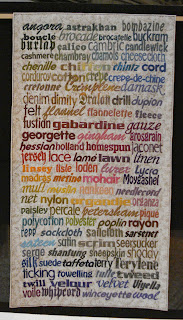 angora astrakhan bombazine
boucle brocade brocatelle buckram
burlap calico cambric candlewick
cashmere chambray chamois cheesecloth
chenille chiffon chintz cord
corduroy cotton crepe crepe-de-chine
cretonne Crimplene damask
denim dimity Dralon drill dupion
felt flannel flannelette fleece
fustian gabardine gauze
georgette gingham grosgrain
hessian holland homespun
jersey lace lamé lawn linen
linsey lisle loden Lurex Lycra
madras merino mohair moleskin
mull muslin nankeen
net nylon organdie organza
paisley percale petersham pique
polycotton polyester poplin rayon
repp sackcloth sailcloth
sateen satin scrim seersucker
serge shantung sharkskin shoddy
silk suede taffeta terry Terylene
ticking towelling tulle tweed
twill velour velvet Viyella
voile winceyette wool